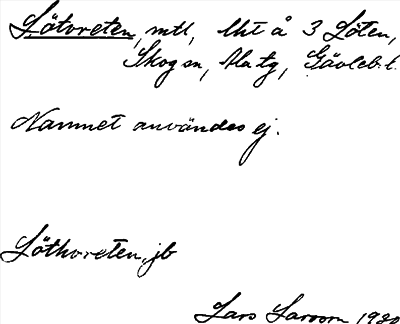 Lötvreten, mtl, lht å 3 Löten,
Skog sn, Ala tg, Gävleb. l.
Namnet användes ej.
Löthvreten, jb
Lars Larsson 1930